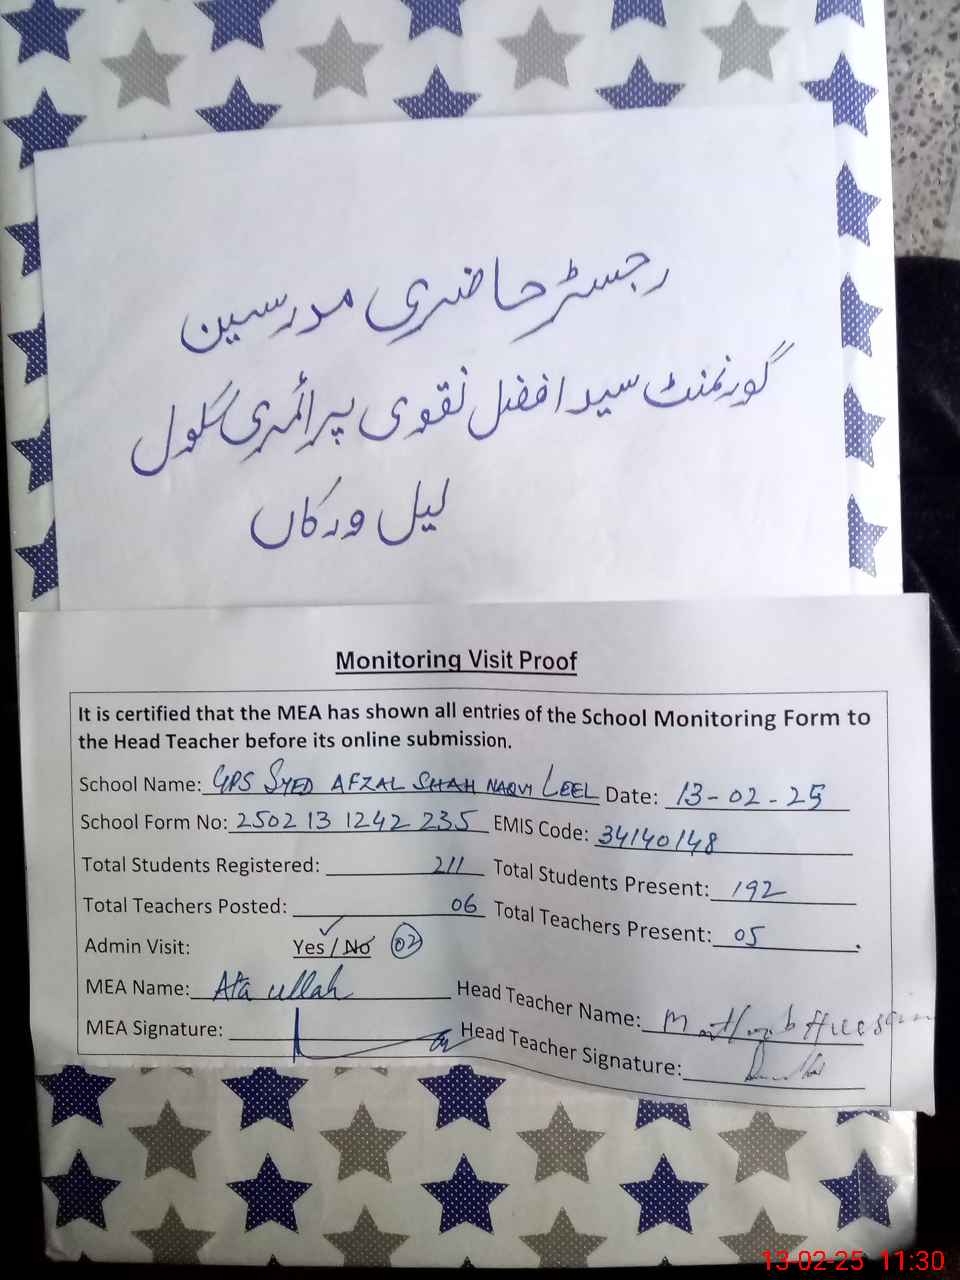 رجسٹر حاضری مدرسین
گورنمنٹ سید افضل نقوی پرائمری سکول
لیل ورکاں
Monitoring Visit Proof
It is certified that the MEA has shown all entries of the School Monitoring Form to
the Head Teacher before its online submission.
School Name: GPS SYED AFZAL SHAH NAQVI LEEL Date: 13-02-25
School Form No: 2502 13 1242 235 EMIS Code: 34140148
Total Students Registered: 211 Total Students Present: 192
Total Teachers Posted: 06 Total Teachers Present: 05
Admin Visit: Yes / No 02
MEA Name: Ata ullah Head Teacher Name: Hussain
MEA Signature: Head Teacher Signature:
13-02-25 11:30